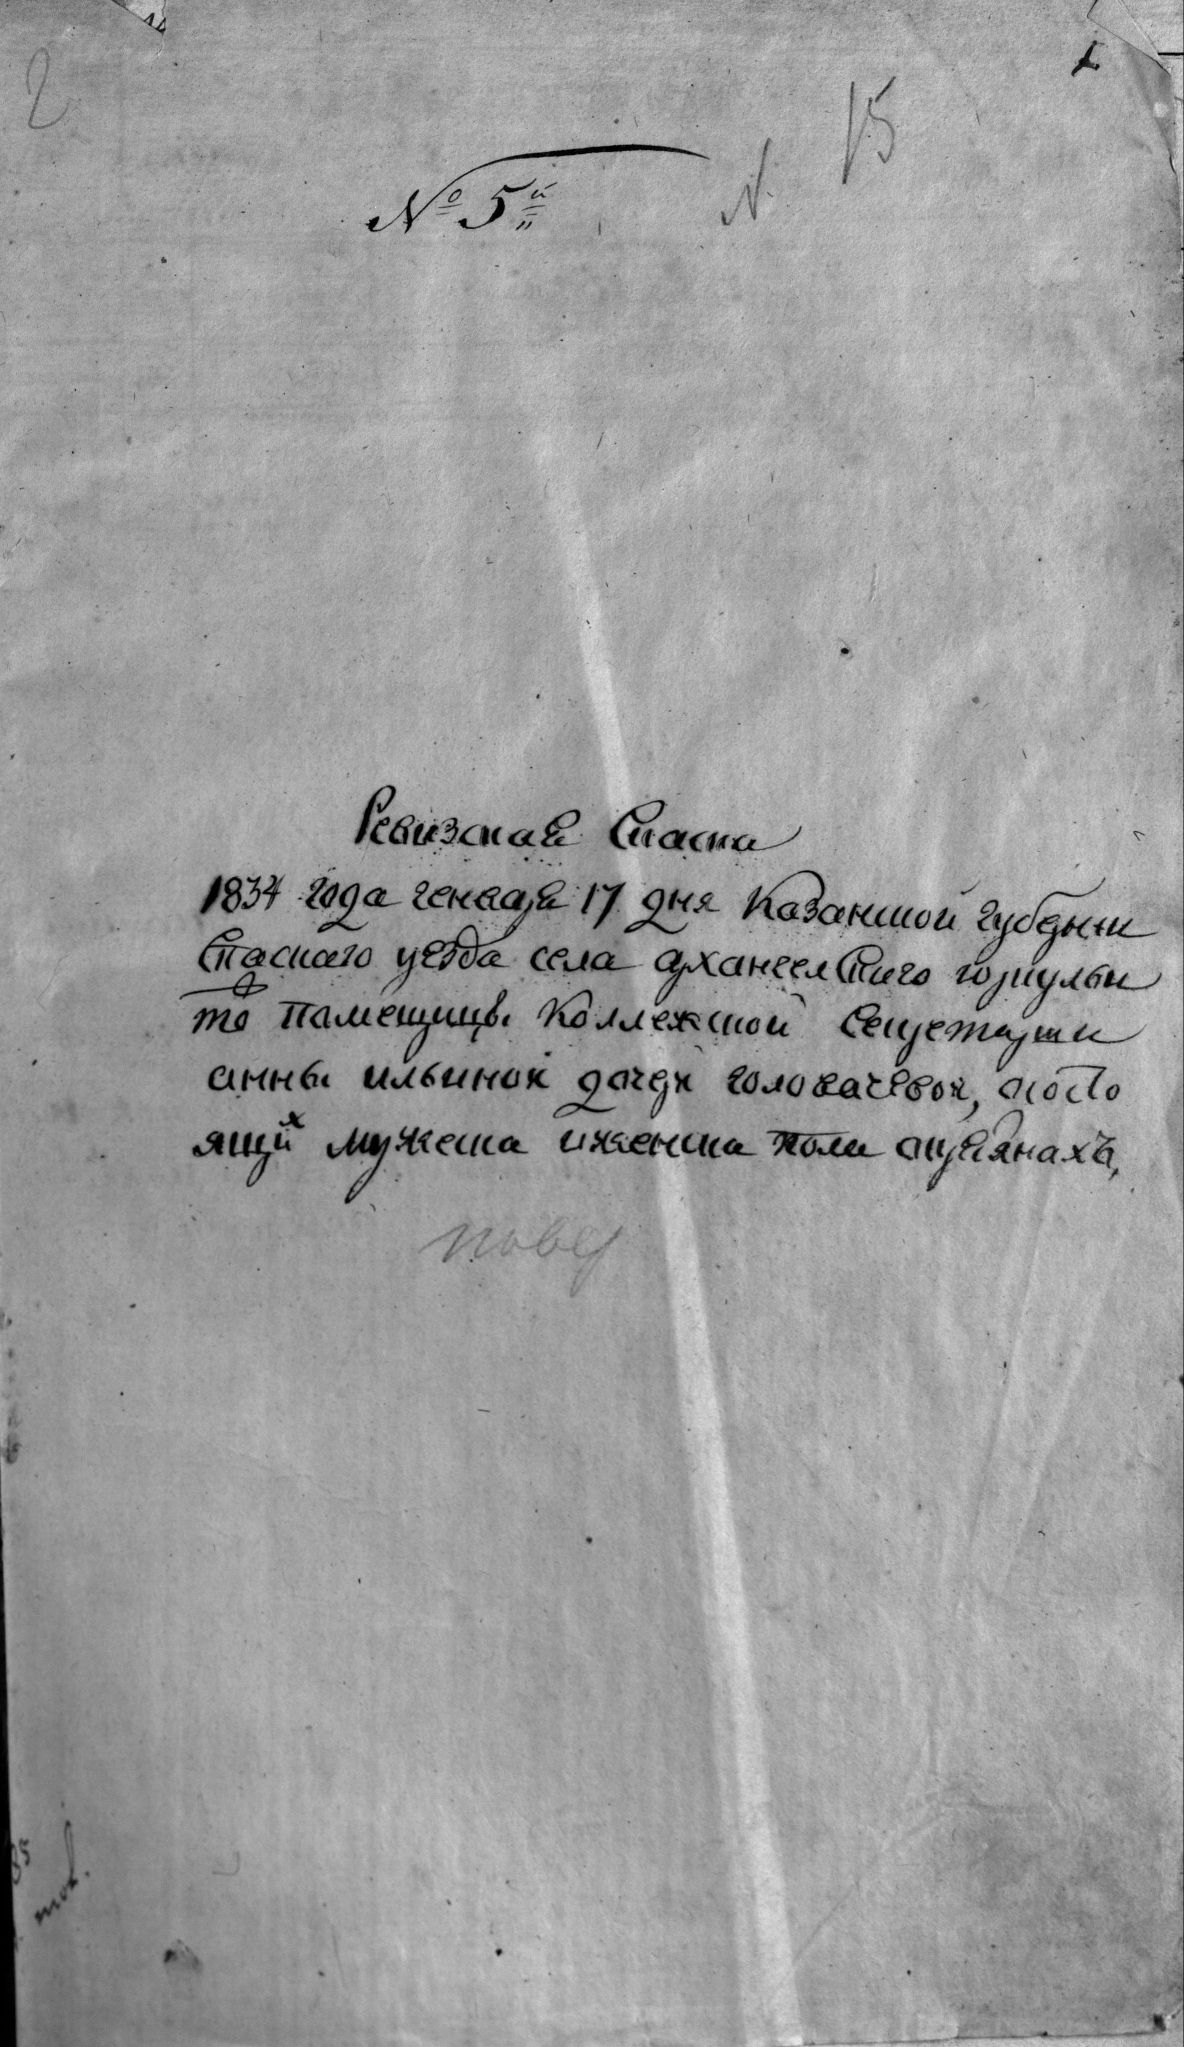 2
15
№ 5й
N.
Ревизская Сказка
1834 года генваря 17 дня Казанской губернии
Спаскаго уезда села архангелскаго
то помещицы Коллежской Секретарши
анны ильиной дочери головачевой, о состо
ящих мужеска иженска пола крестьянахъ,
повер